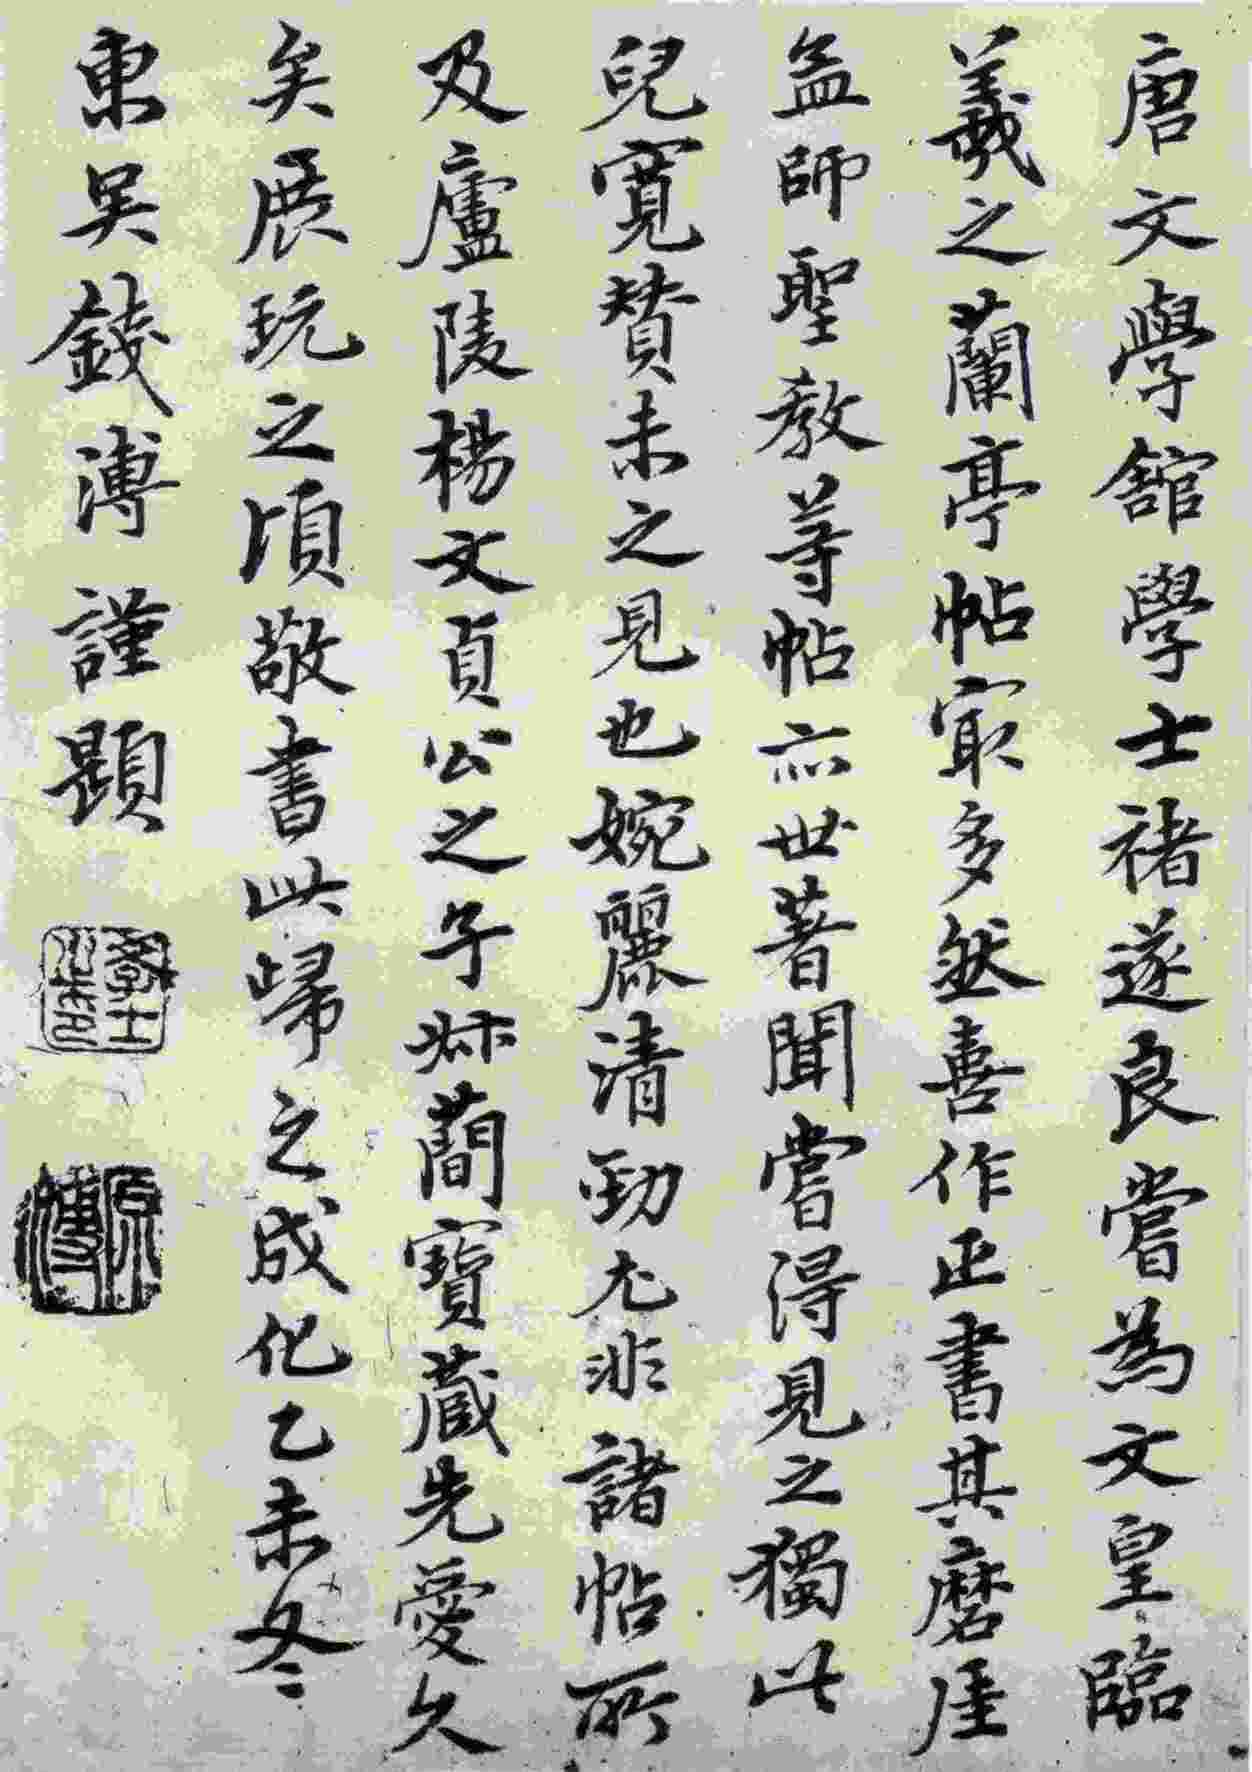 唐文學舘學士褚遂良嘗為文皇臨
羲之蘭亭帖㝡多然善作正書其磨厓
孟師聖教等帖亦世著聞嘗得見之獨此
兒寬贊未之見也婉麗清勁尤非諸帖所
及廬陵楊文貞公之子叔蕳寶藏先愛久
矣展玩之頃敬書此歸之成化乙未冬
東吴錢溥謹題
學士之印
原溥